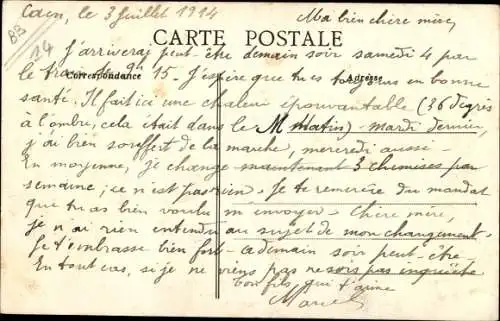 Caen, le 3 Juillet 1914
Ma bien chère mère,
CARTE POSTALE
Correspondance
Adresse
J'arriverai peut-être demain soir samedi 4 par
le train de 9h 15. J'espère que tu es toujours en bonne
santé. Il fait ici une chaleur épouvantable (36 degrés
à l'ombre, cela était dans le M matin) mardi dernier,
j'ai bien souffert de la marche, mercredi aussi.
En moyenne, je change maintenant 3 chemises par
semaine; ce n'est pas rien. Je te remercie du mandat
que tu as bien voulu m'envoyer. Chère mère,
je n'ai rien entendu au sujet de mon changement.
Je t'embrasse bien fort - à demain soir peut-être.
En tout cas, si je ne viens pas ne sois pas inquiète
ton fils qui t'aime
Marcel